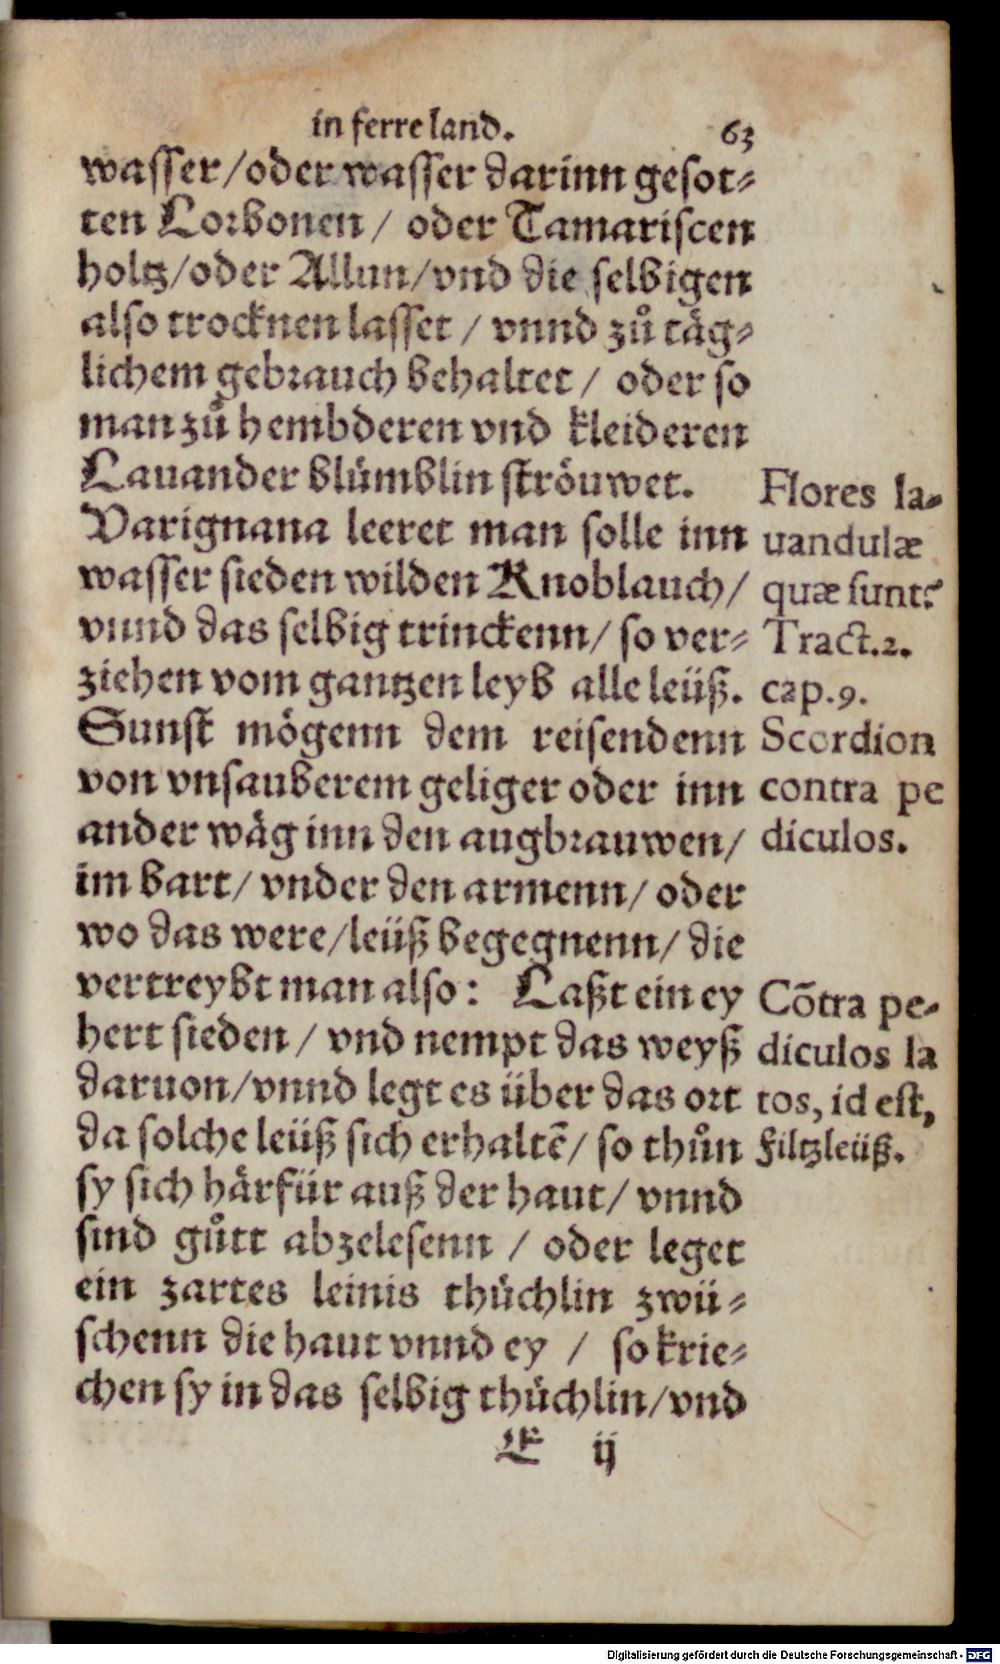 in ferre land. 63
wasser/oder wasser darinn gesot-
ten Lorbonen/ oder Tamariscen
holtz/oder Allun/vnd die selbigen
also trocknen lasset / vnnd zů täg-
lichem gebrauch behaltet / oder so
man zů hembderen vnd kleideren
Lauander blůmblin ströuwet.
Varignana leeret man solle inn
wasser sieden wilden Knoblauch/
vnnd das selbig trinckenn/ so ver-
ziehen vom gantzen leyb alle leüß.
Sunst mögenn dem reisendenn
von vnsauberem geliger oder inn
ander wäg inn den augbrauwen/
im bart/ vnder den armenn/ oder
wo das were/leüß begegnenn/ die
vertreybt man also: Laßt ein ey
hert sieden / vnd nempt das weyß
daruon/vnnd legt es über das ort
da solche leüß sich erhaltē/ so thůn
sy sich härfür auß der haut/ vnnd
sind gůtt abzelesenn / oder leget
ein zartes leinis thůchlin zwü-
schenn die haut vnnd ey / so krie-
chen sy in das selbig thůchlin/vnd
E ij
Flores la-
uandulæ
quæ sunt?
Tract.2.
cap.9.
Scordion
contra pe
diculos.
Cōtra pe-
diculos la
tos, id est,
Filtzleüß.
Digitalisierung gefördert durch die Deutsche Forschungsgemeinschaft - DFG